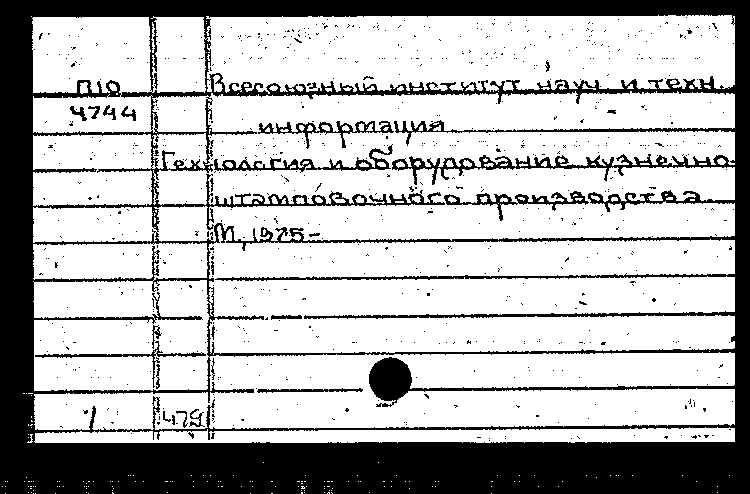 П10 Всесоюзный институт науч и техн.
4744 информация
Технология и оборудование кузнечно-
штамповочного производства.
М, 1975-
1 479